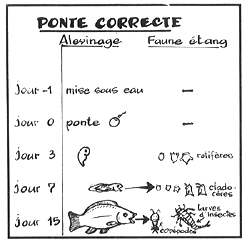 PONTE CORRECTE
Alevinage Faune étang
jour -1 mise sous eau –
jour 0 ponte –
jour 3 rotifères
jour 7 clado-
cères
jour 15 larves
d'insectes
copépodes